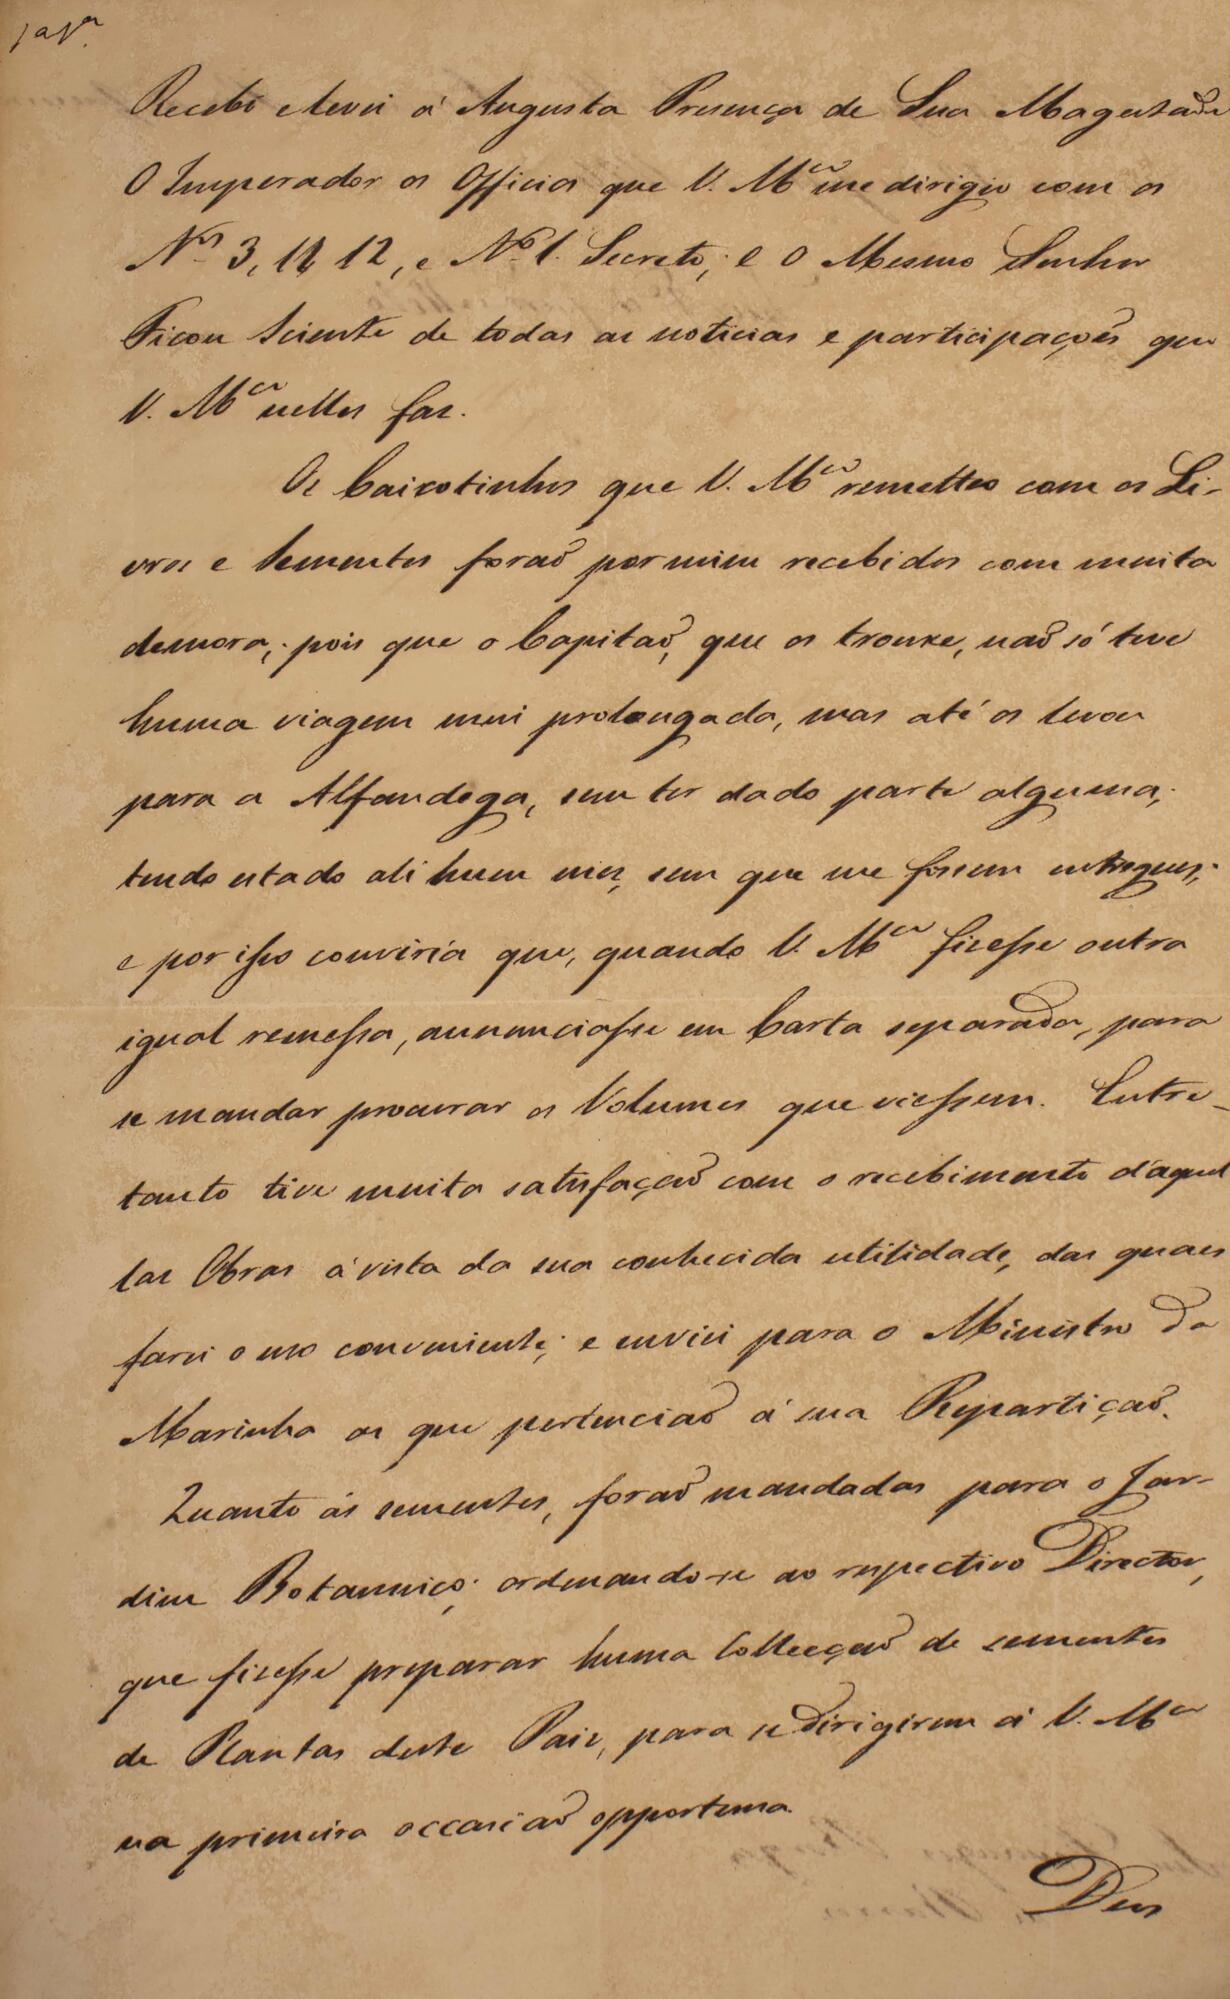 1ª Vª
Recebi e levei á Augusta Presença de Sua Magestade
O Imperador os Officios que V. M.ce me dirigio com os
N.os 3, 11, 12, e N.º 1. Secreto; e O Mesmo Senhor
Ficou Sciente de todas as noticias e participações que
V. M.ce nelles faz.
Os Caixotinhos que V. M.ce remetteo com os Li-
vros e Sementes foraõ por mim recebidos com muita
demora; pois que o Capitaõ, que os trouxe, naõ só teve
huma viagem mui prolongada, mas até os levou
para a Alfandega, sem ter dado parte alguma;
tendo estado ali hum mez, sem que me fossem entregues;
e por isso conviria que, quando V. M.ce fizesse outra
igual remessa, annunciasse em Carta separada, para
se mandar procurar os Volumes que viessem. Entre-
tanto tive muita satisfaçaõ com o recebimento d'aquel
las Obras á vista da sua conhecida utilidade, das quaes
farei o uso conveniente; e enviei para o Ministro da
Marinha as que pertenciaõ á sua Repartiçaõ.
Quanto ás sementes, foraõ mandadas para o Jar-
dim Botannico; ordenando-se ao respectivo Director,
que fizesse preparar huma Collecçaõ de sementes
de Plantas deste Paiz, para se dirigirem á V. M.ce
na primeira occasiaõ opportuna.
Deus